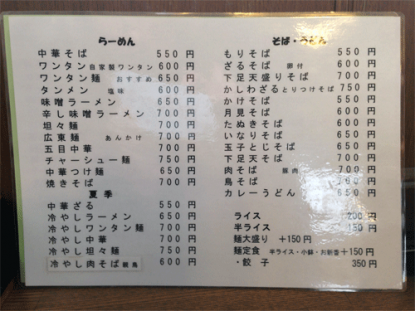 らーめん
中華そば 550円
ワンタン 自家製ワンタン 600円
ワンタン麺 おすすめ 650円
タンメン 塩味 600円
味噌ラーメン 650円
辛し味噌ラーメン 700円
坦々麺 700円
広東麺 あんかけ 700円
五目中華 700円
チャーシュー麺 750円
中華つけ麺 650円
焼きそば 700円
夏季
中華ざる 550円
冷やしラーメン 650円
冷やしワンタン麺 700円
冷やし中華 700円
冷やし坦々麺 750円
冷やし肉そば 親鳥 600円
そば・うどん
もりそば 550円
ざるそば 卵付 600円
下足天盛りそば 700円
かしわざる とりつけそば 750円
かけそば 550円
月見そば 600円
たぬきそば 600円
いなりそば 650円
玉子とじそば 650円
下足天そば 700円
肉そば 豚肉 700円
鳥そば 700円
カレーうどん 650円
ライス 200円
半ライス 150円
麺大盛り +150円
麺定食 半ライス・小鉢・お新香 +150円
・餃子 350円